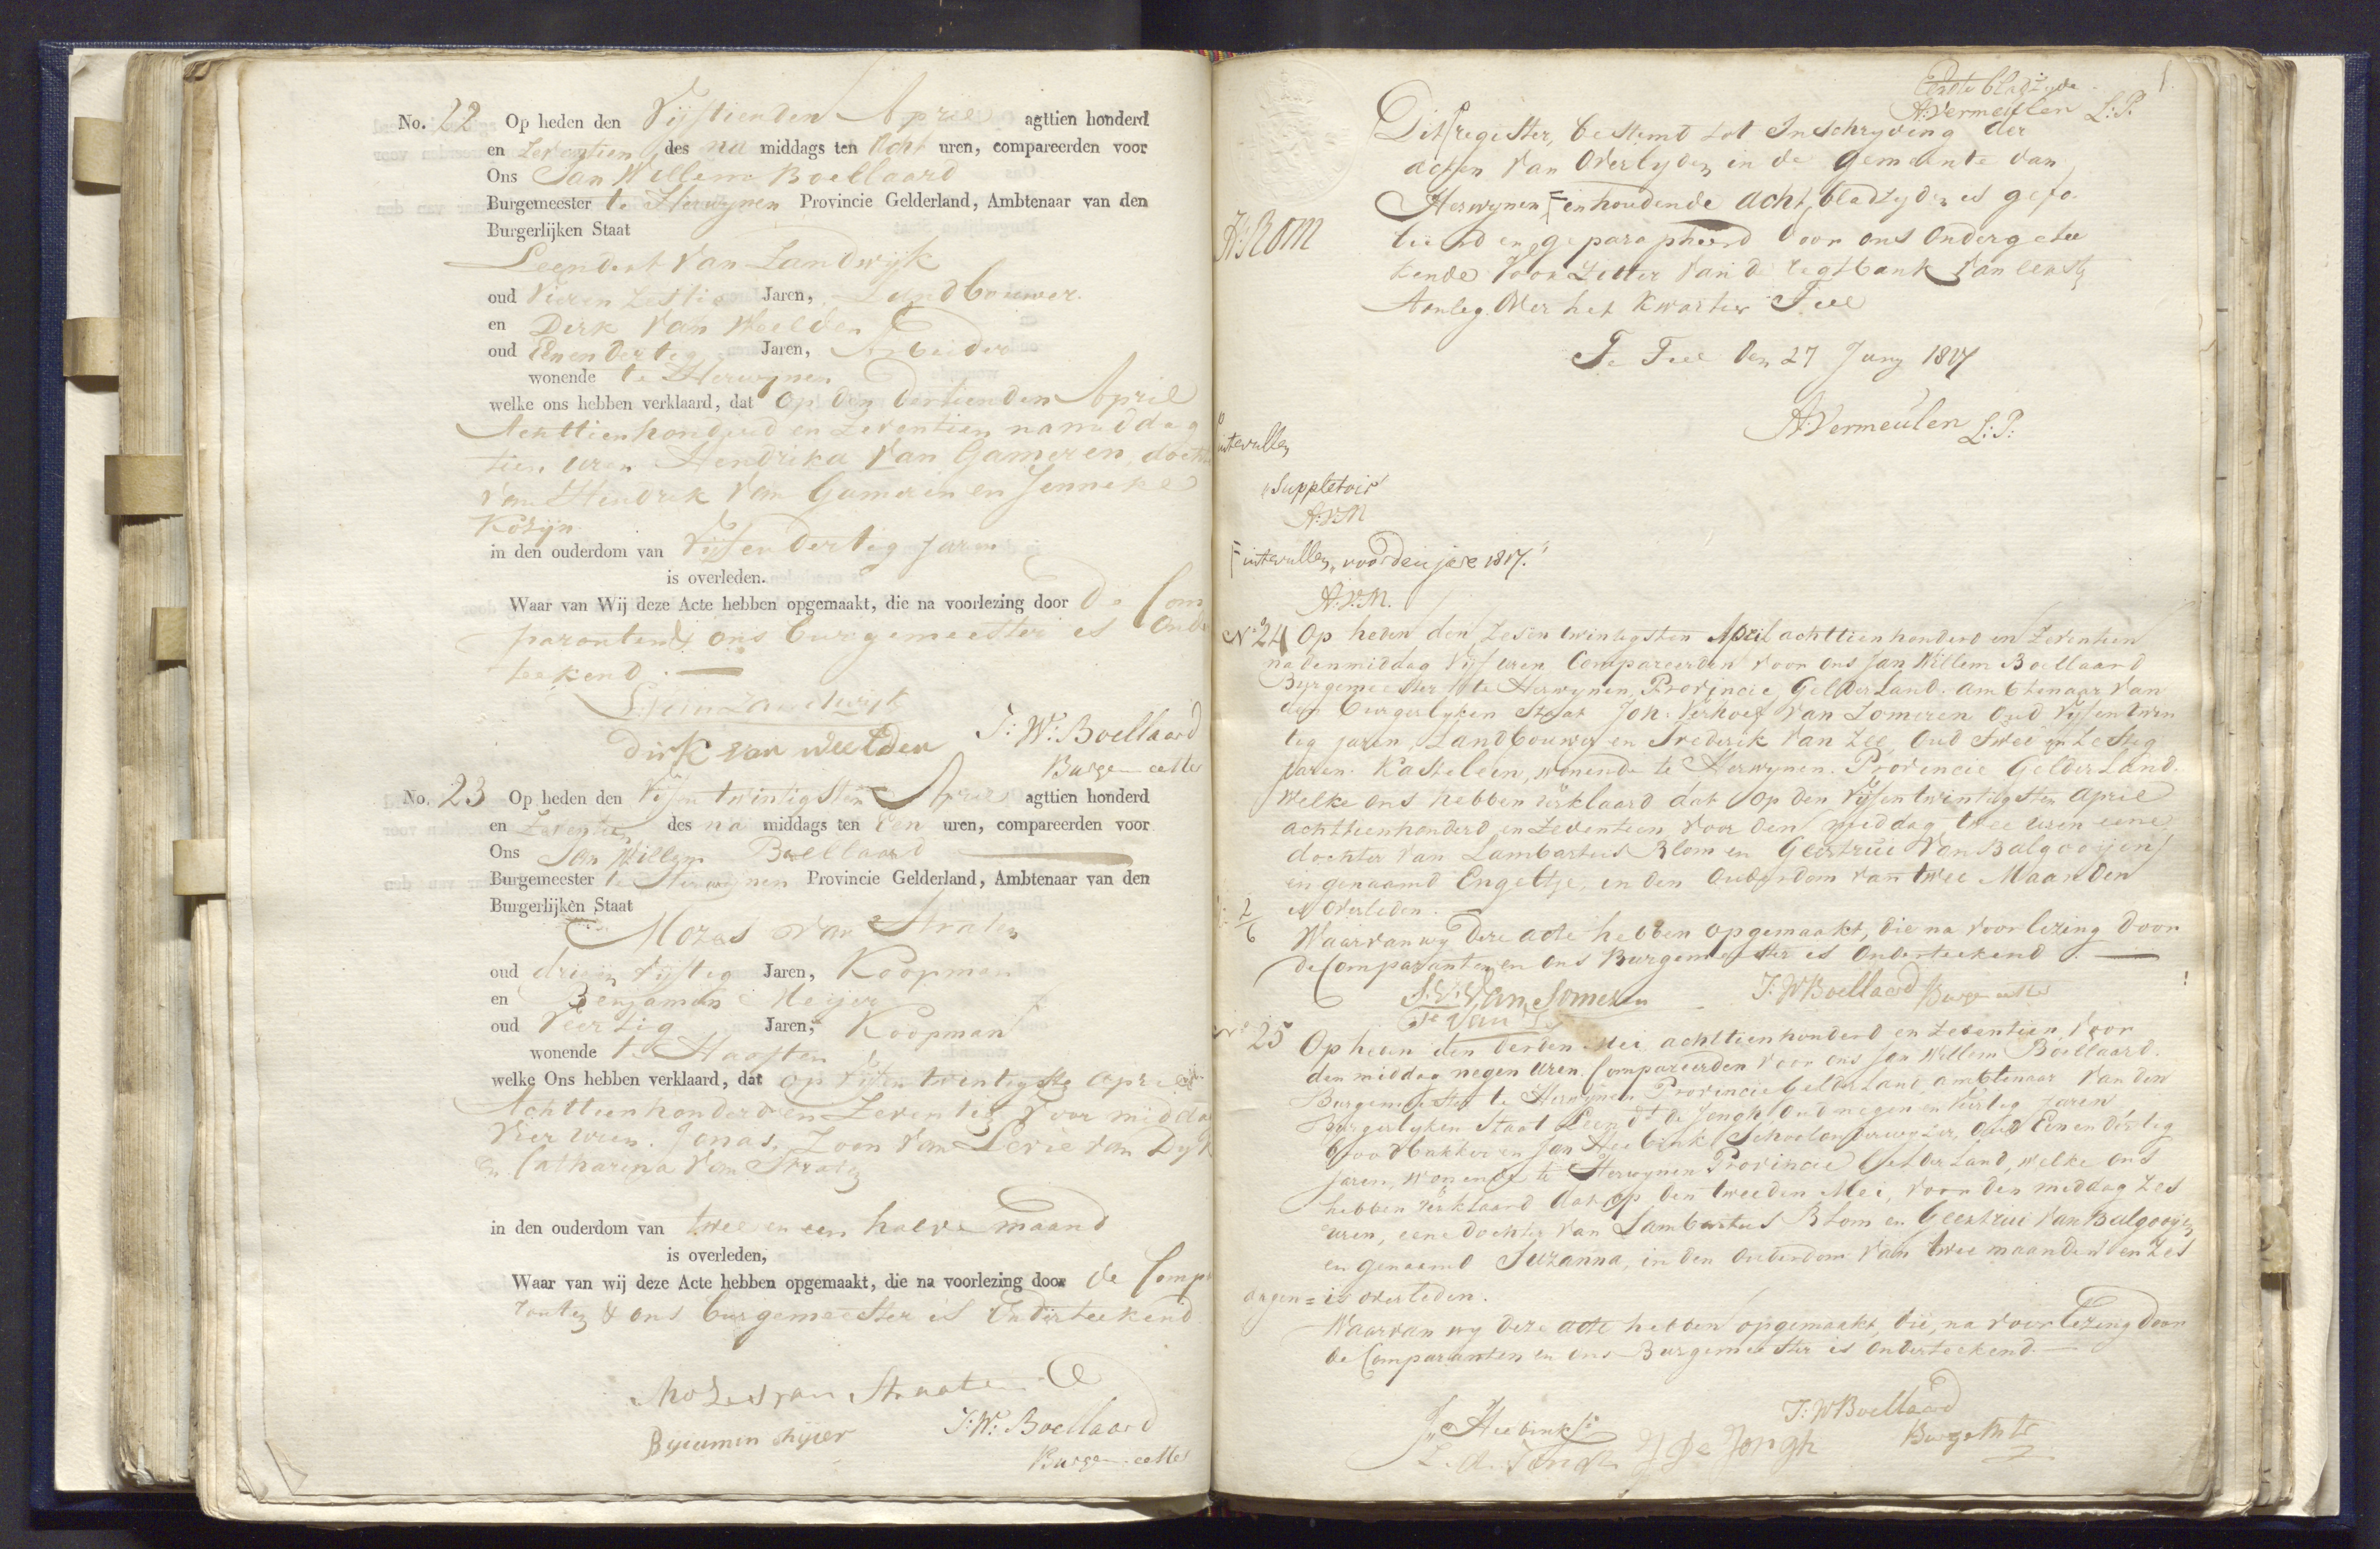 No. 22 Op heden den Vijftienden April agttien honderd
en Zeventien des na middags ten Acht uren, compareerden voor
Ons Jan Willem Boellaard
Burgemeester te Herwynen Provincie Gelderland, Ambtenaar van den
Burgerlijken Staat
Leendert van Landwijk
oud Jaren, Landbouwer.
en Dirk van Weelden
oud Eenendertig Jaren, Arbeider
wonende te Herwynen
welke ons hebben verklaard, dat op den dertienden April
Achttienhonderd en Zeventien namiddag
tien uren Hendrika van Gameren docht
van Hendrik van Gameren en Jenneke
Kosyn
in den ouderdom van Vijfendertig jaren
is overleden.
Waar van Wij deze Acte hebben opgemaakt, die na voorlezing door de Com
paranten & ons burgemeester is Onder
teekend
L van Landwijk
dirk van weelden J: W: Boellaard
Burgemeester
No. 23 Op heden den Vijfentwintigsten April agttien honderd
en Zeventien des na middags ten Een uren, compareerden voor
Ons Jan Willem Boellaard
Burgemeester te Herwynen Provincie Gelderland, Ambtenaar van den
Burgerlijken Staat
Mozes van Straten
oud drieen Vijftig Jaren, Koopman
en Benjamin Meijer
oud Veertig Jaren, Koopman
wonende te Haaften
welke Ons hebben verklaard, dat op vijfentwintigste April
Achttienhonderd en Zeventien voor middag
Vier uren. Jonas, Zoon van Levie van Dyk
en Catharina van Straten
in den ouderdom van twee en een halve maand
is overleden,
Waar van wij deze Acte hebben opgemaakt, die na voorlezing door de Compa
ranten & ons burgemeester is Onderteekend
Mozes van Straaten
J: W: Boellaard
Burgemeester
Eerste bladzyde 1.
A:Vermeulen L:P.
Dit register, bestemd tot Inschryving der
acten van Overlyden in de gemeente van
Herwynen F inhoudende acht bladzyden is gefo
lieerd en geparapheerd door ons Ondergetee
kende Voorzitter van de regtbank van eersten
Aanleg over het Kwartier Tiel
Te Tiel den 27 Juny 1817
A:Vermeulen L:P:
intevullen
suppletoir
A:V:M
F intevullen, voor den jare 1817.
A:V:M.
No 24 Op heden den Zesentwintigsten April achttienhonderd en Zeventien
nadenmiddag Vijf uren Compareerden voor ons Jan Willem Boellaard
Burgemeester te Herwynen, Provincie Gelderland. ambtenaar van
den burgerlyken Staat Joh: Verhoef van Zomeren Oud Vijfentwin
tig jaren, Landbouwer en Frederik van Zee, Oud twee en Zestig
jaren. Kastelein, wonende te Herwynen. Provincie Gelderland.
Welke Ons hebben verklaard dat op den Vijfentwintigsten April
achttienhonderd en Zeventien, voor den middag twee uren eene
dochter van Lambartus Blom en Geertrui van Balgooijen
en genaamd Engeltje, in den Ouderdom van twee Maanden
is Overleden.
Waarvan wy deze acte hebben opgemaakt, die na voorlezing door
de Comparanten en Ons Burgemeester is Onderteekend.
van Someren J:WBoellaard Burgemeester
No 25 Op heden den derden Mei achttienhonderd en Zeventien, voor
den middag negen uren. Compareerden voor ons Jan Willem Boellaard.
Burgemeester te Herwynen Provincie Gelderland ambtenaar van den
burgerlyken Staat Leendt de Jongh Oud negen en Veertig jaren
broodbakker en Jan Heebink Schoolonderwyzer, Oud Een en dertig
jaren, wonende te Herwynen Provincie Gelderland, welke ons
hebben verklaard dat op den tweeden Mei, voor den middag Zes
uren, eene dochter van Lambartus Blom en Geertrui van Balgooijen
en genaamd Suzanna, in den Ouderdom van twee maanden en Zes
dagen = is overleden.
Waarvan wy deze acte hebben opgemaakt, die, na voorlezing door
de Comparanten en ons Burgemeester is Onderteekend.
J: Heebink
J:WBoellaard
Burgemtr
De Jongh